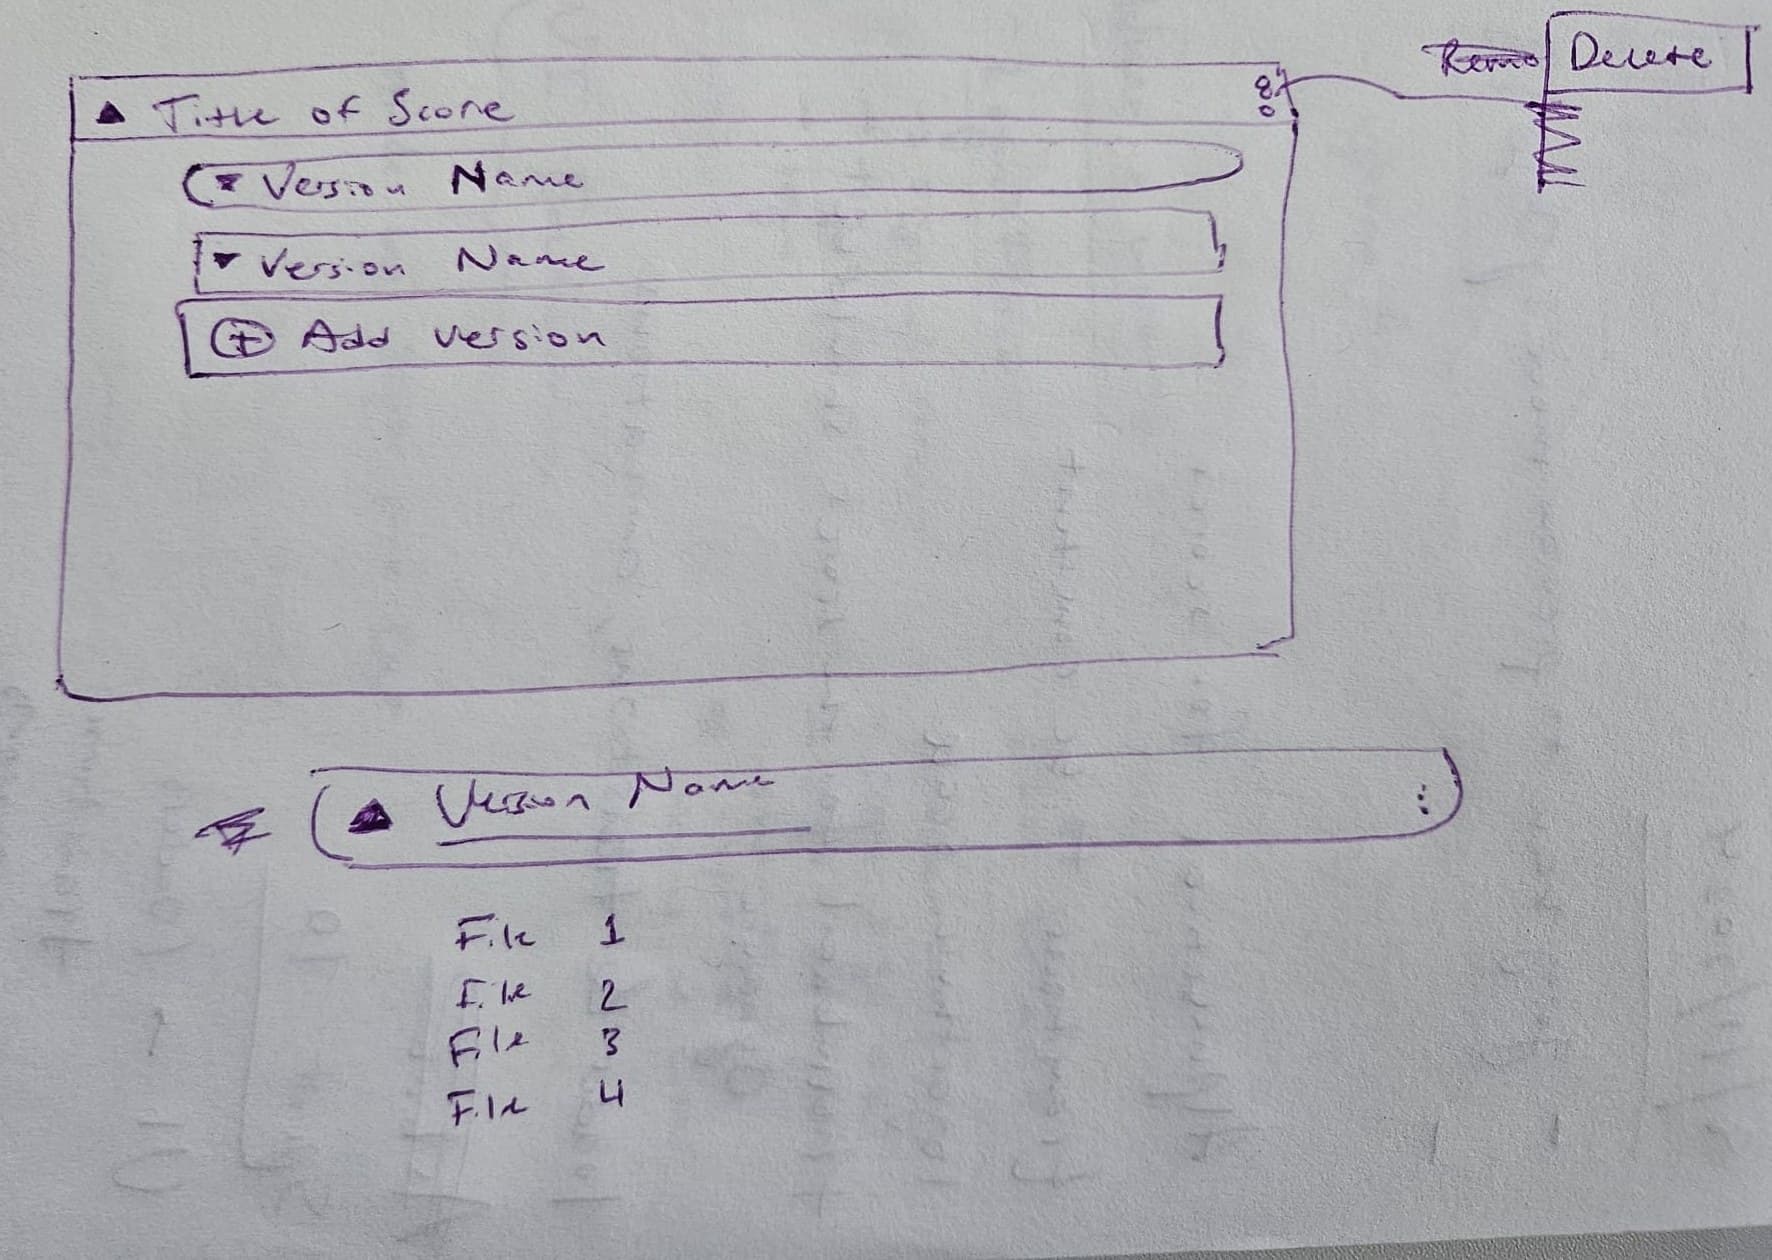 Delete
Title of Score
Version Name
Version Name
+ Add version
Version Name
File 1
File 2
File 3
File 4